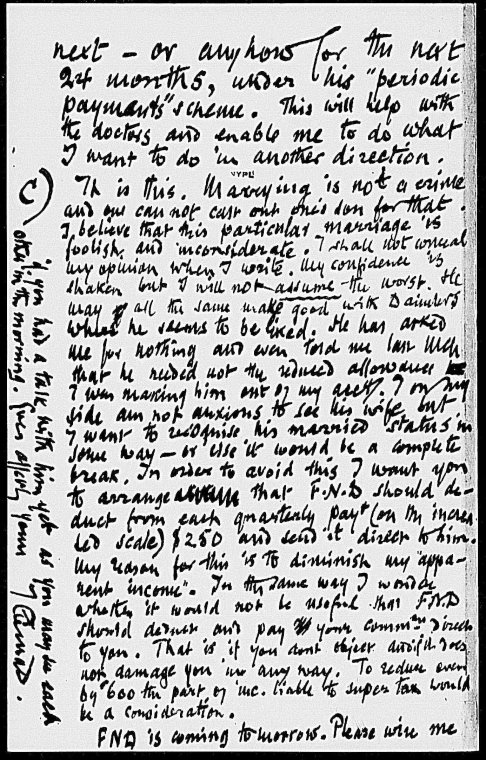 next – or anyhow for the next
24 months, under his "periodic
payments" scheme. This will help with
the doctors and enable me to do what
I want to do in another direction.
It is this. Marrying is not a crime
and one can not cast out one's son for that.
I believe that this particular marriage is
foolish, and inconsiderate. I shall not conceal
my opinion when I write. My confidence is
shaken but I will not assume the worst. He
may all the same make good with Daimlers
where he seems to be liked. He has asked
me for nothing and even told me last
that he needed not the reduced allowance
I was making him out of my acct. I on my
side am not anxious to see his wife but
I want to recognise his married status in
some way – or else it would be a complete
break. In order to avoid this I want you
to arrange that F.N.D should de-
duct from each quarterly payt (on the increa
sed scale) $250 and send it direct to him.
My reason for this is to diminish my "appa-
rent income". In the same way I wonder
whether it would not be useful that F.N.D
should deduct and pay your commn direct
to you. That is if you dont object and it does
not damage you in any way. To reduce even
by 600 the part of inc. liable to super tax would
be a consideration.
FND is coming tomorrow. Please wire me
if you had a talk with him yet as you may see each
other in the morning. Yours